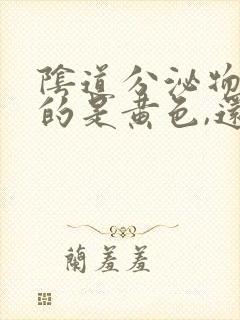 陰道分泌物
的是黃色,還
蘭羞羞